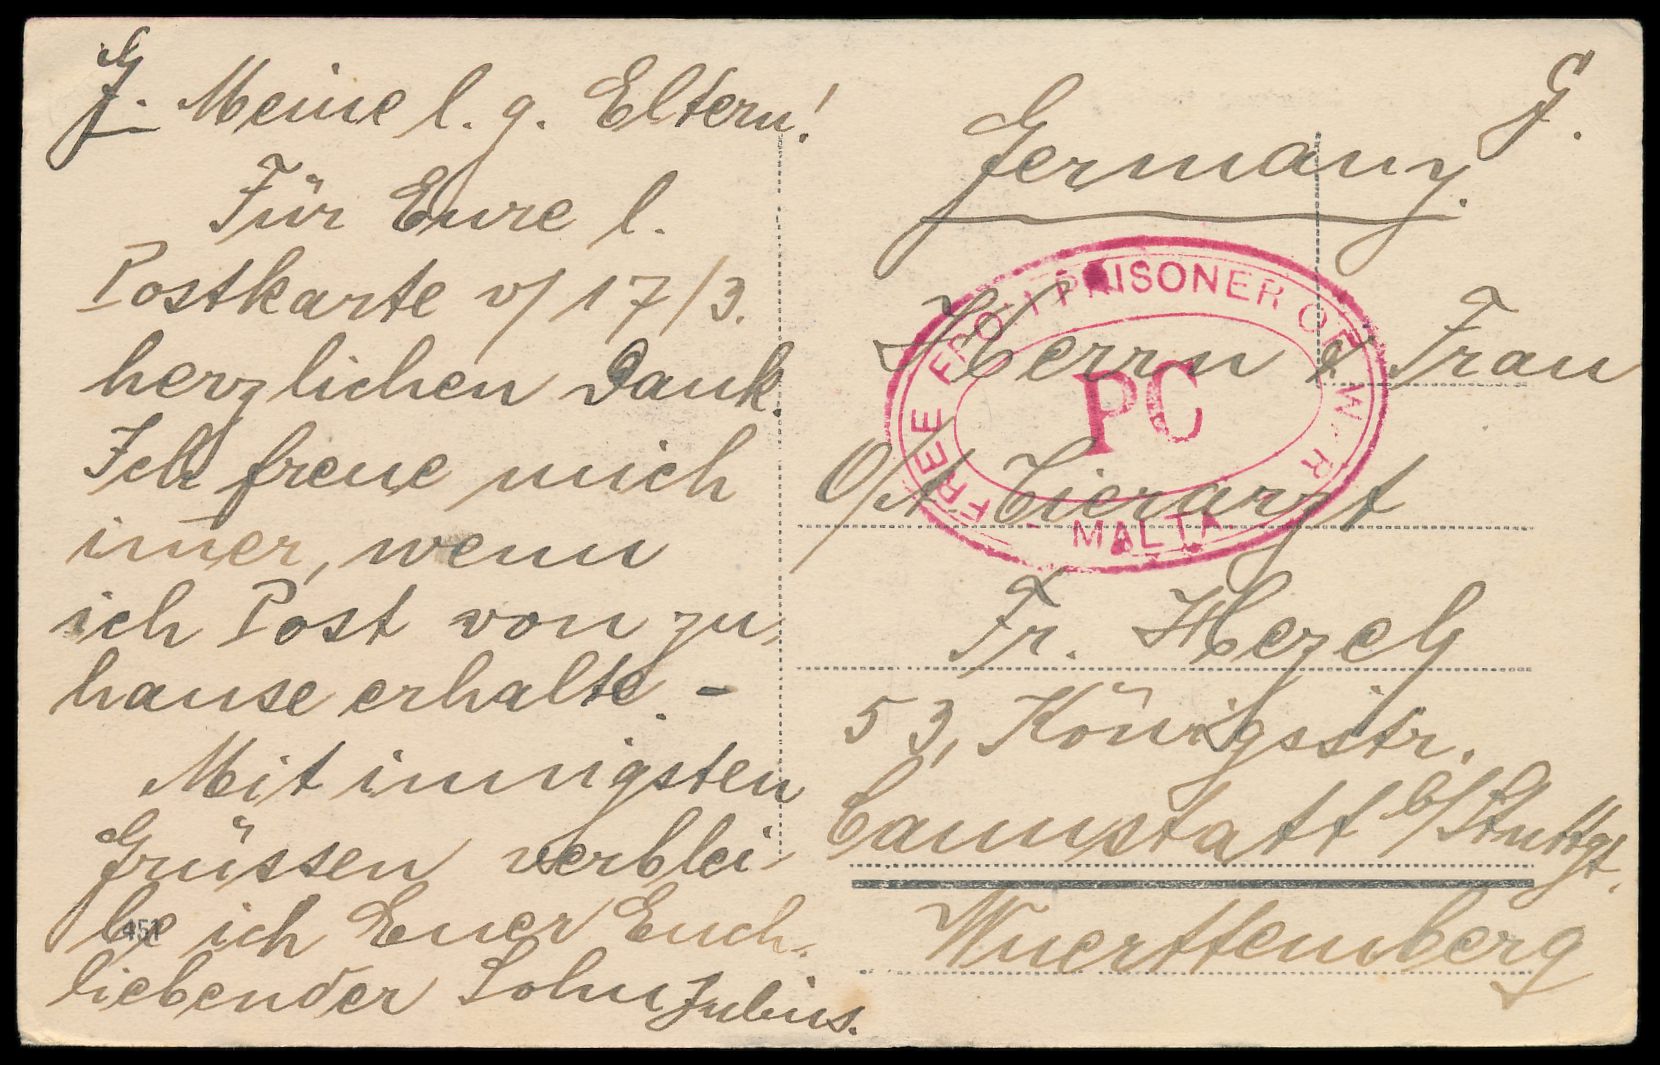 G. Meine l. g. Eltern!
Für Eure l.
Postkarte v/ 17/3.
herzlichen Dank.
Ich freue mich
im̄er, wenn
ich Post von zu
hause erhalte. –
Mit innigsten
Grüssen verblei-
be ich Euer Euch
liebender Sohn Julius.
451
G.
Germany.
FREE FROM PRISONER OF WAR
PC
MALTA
Herrn & Frau
O/A Tierarzt
Fr. Hezel
53, Königsstr.
Cannstatt b/Stuttgt.
Wuerttemberg